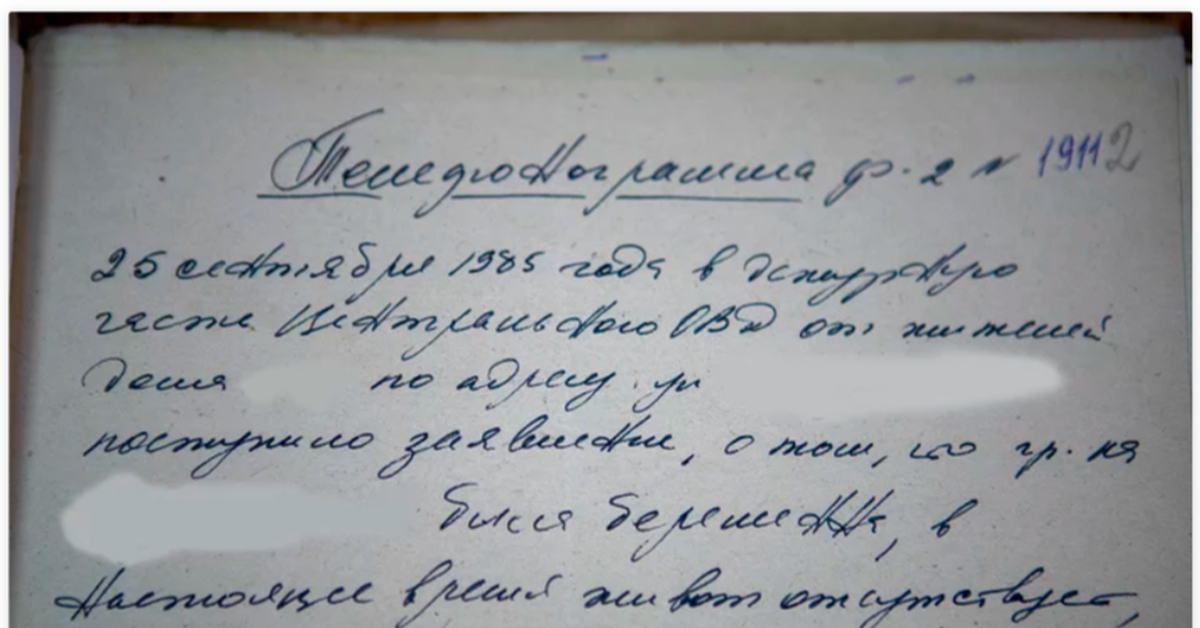 Телефонограмма ф. 2 N 19112
25 сентября 1985 года в дежурную
часть Центрального ОВД от жителей
дома по адресу ул
поступило заявление, о том, что гр. ка
была беременна, в
настоящее время живот отсутствует,